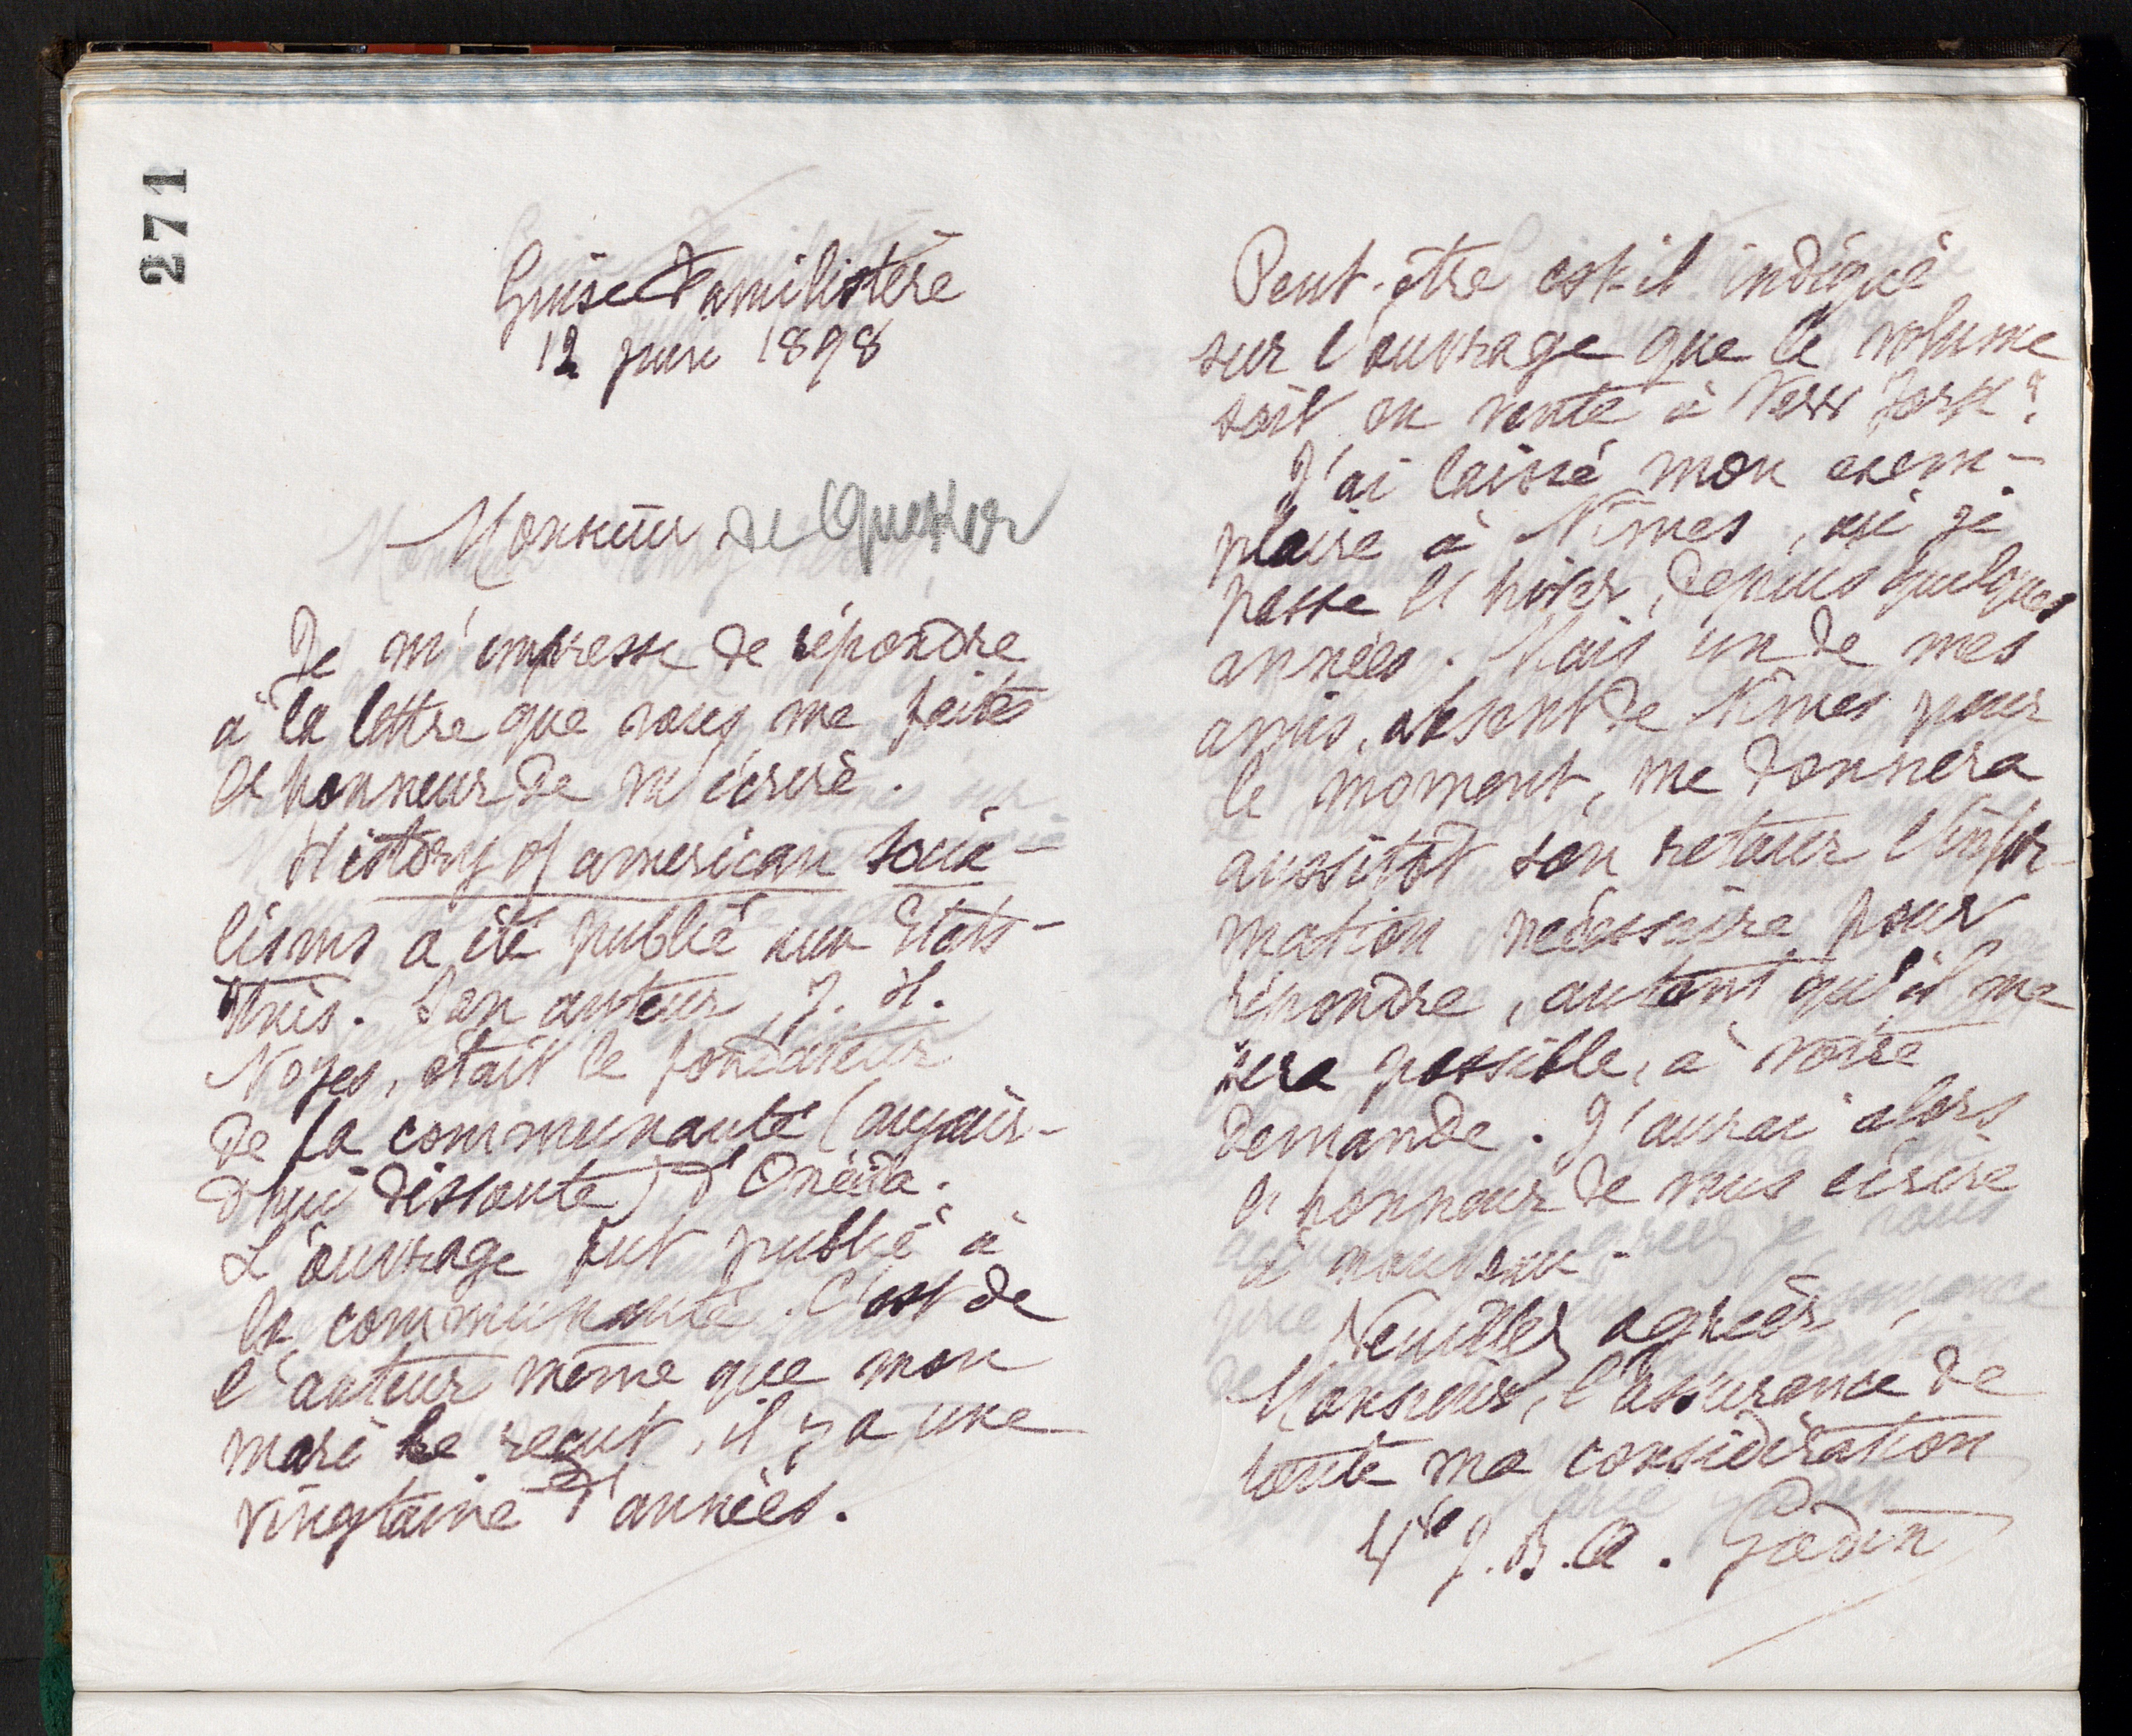 271
Guise Familistère
12 juin 1898
Monsieur de Quekér
Je m'empresse de répondre
à la lettre que vous me faites
l'honneur de m'écrire.
History of american socia-
lisms a été publié aux Etats-
Unis. Son auteur, J. H.
Noyes, était le fondateur
de la communauté (aujour-
d'hui dissoute) d'Onéida.
L'ouvrage fut publié à
la communauté. C'est de
l'auteur même que mon
mari le reçut, il y a une
vingtaine d'années.
Peut-être est-il indiqué
sur l'ouvrage que le volume
soit en vente à New York?
J'ai laissé mon exem-
plaire à Nîmes, où je
passe l'hiver, depuis quelques
années. Mais un de mes
amis, absent de Nîmes pour
le moment, me donnera
aussitôt son retour l'infor-
mation nécessaire pour
répondre, autant qu'il me
sera possible, à votre
demande. J'aurai alors
l'honneur de vous écrire
à nouveau.
Veuillez agréer,
Monsieur, l'assurance de
toute ma considération
Vve J. B. A. Godin